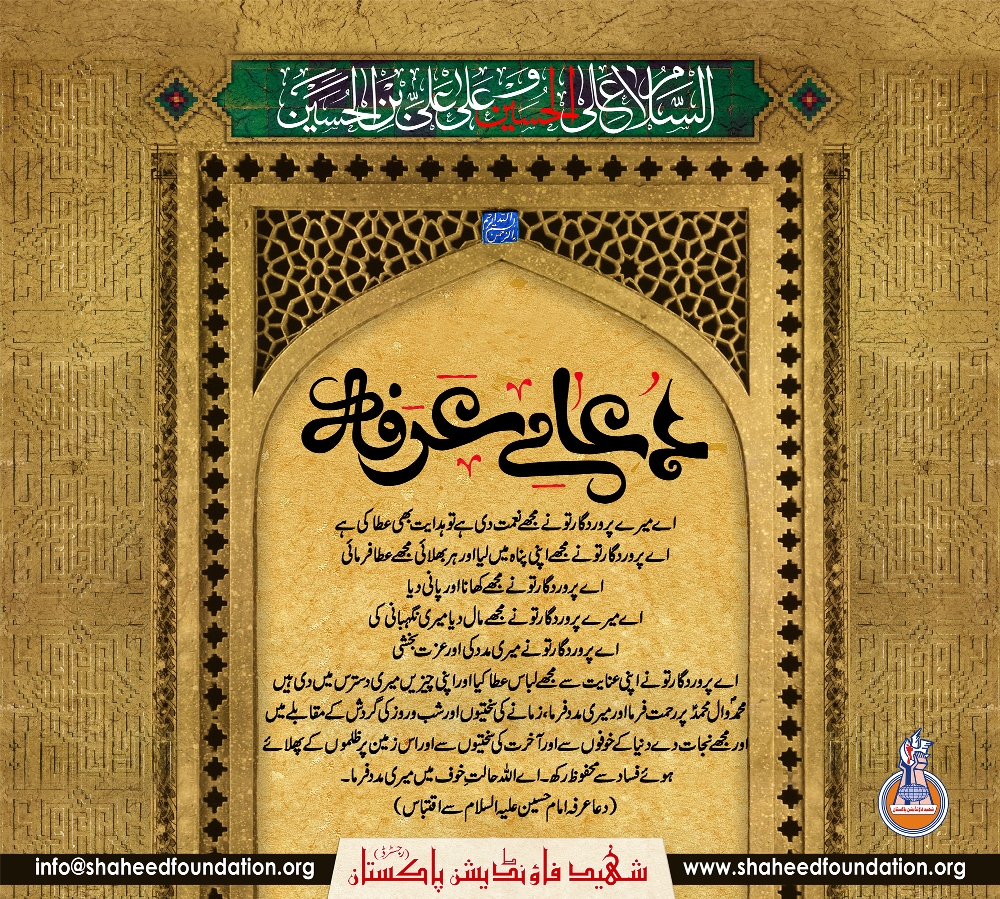 السلام علی الحسین وعلی علی بن الحسین
بسم اللہ الرحمن الرحیم
دُعائے عَرَفہ
اے میرے پروردگار تو نے مجھے نعمت دی ہے تو ہدایت بھی عطا کی ہے
اے پروردگار تو نے مجھے اپنی پناہ میں لیا اور ہر بھلائی مجھے عطا فرمائی
اے پروردگار تو نے مجھے کھانا اور پانی دیا
اے میرے پروردگار تو نے مجھے مال دیا میری نگہبانی کی
اے پروردگار تو نے میری مدد کی اور عزت بخشی
اے پروردگار تو نے اپنی عنایت سے مجھے لباس عطا کیا اور اپنی چیزیں میری دسترس میں دی ہیں
محمدؐ وآل محمدؐ پر رحمت فرما اور میری مدد فرما، زمانے کی سختیوں اور شب و روز کی گردش کے مقابلے میں
اور مجھے نجات دے دنیا کے خوفوں سے اور آخرت کی سختیوں سے اور اس زمین پر ظلموں کے پھلائے
ہوئے فساد سے محفوظ رکھ۔ اے اللہ حالتِ خوف میں میری مدد فرما۔
(دعا عرفہ امام حسین علیہ السلام سے اقتباس)
شہید فاؤنڈیشن پاکستان
info@shaheedfoundation.org
شہید فاؤنڈیشن پاکستان (رجسٹرڈ)
www.shaheedfoundation.org